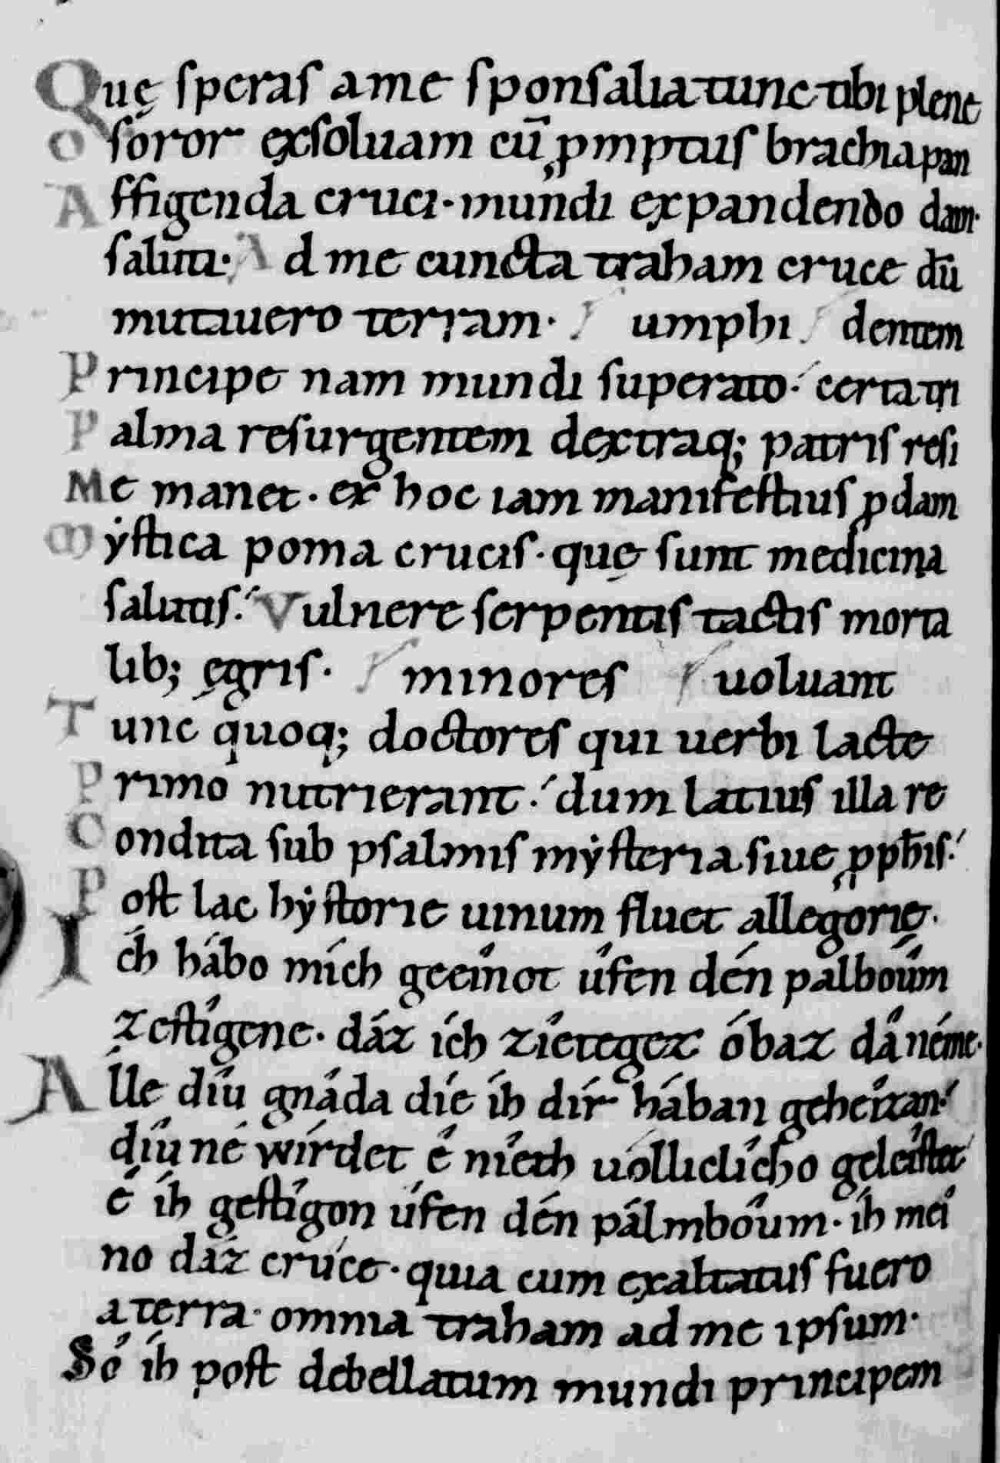 Quę speras a me sponsalia tunc tibi plene
O soror exsoluam cū p̄mptus brachia pan
Affigenda cruci· mundi expandendo dam·
salutı̄· Ad me cuncta traham cruce dū
mutauero terram· umphi dentem
Principe nam mundi superato· certam
Palma resurgentem dextraq; patris resi
Me manet· ex hoc iam manifestius ꝓdam
Mẏstica poma crucis· quę sunt medicina
salutis· Vulnere serpentis tactis morta
lib; ęgris· minores uoluant
Tunc quoq; doctores qui uerbi lacte
Primo nutrierant· dum latius illa re
Condita sub psalmis mẏsteria siue ꝓph̄is·
Post lac hẏstorie uinum fluet allegorię·
Ich hábo mích geeı́not úfen dén palboúm
zestı́gene· dáz ích zíeteger óbaz dánéme·
Alle díu gnáda díe íh dír hában geheízan·
díu né wírdet é níeth uólliclícho geleístet
é íh gestı́gon úfen dén pálmboúm· íh meí
no dáz crúce· quia cum exaltatus fuero
a terra· omnia traham ad me ipsum·
Só íh post debellatum mundi principem